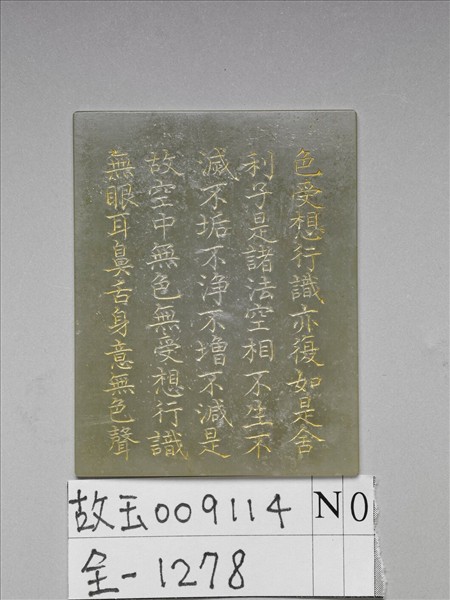 色受想行識亦復如是舍
利子是諸法空相不生不
滅不垢不淨不增不減是
故空中無色無受想行識
無眼耳鼻舌身意無色聲
故玉009114 NO
全一1278